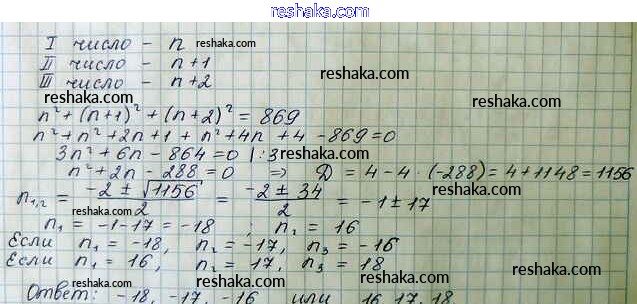 reshaka.com
I число - n reshaka.com
II число - n+1
III число - n+2 reshaka.com
reshaka.com
n² + (n+1)² + (n+2)² = 869
n² + n² + 2n + 1 + n² + 4n + 4 - 869 = 0
3n² + 6n - 864 = 0 | :3 reshaka.com
n² + 2n - 288 = 0 ⇒ D = 4 - 4 · (-288) = 4 + 1148 = 1156
n₁,₂ = (-2 ± √1156)/2 = (-2 ± 34)/2 = -1 ± 17 reshaka.com
reshaka.com
n₁ = -1 - 17 = -18 ; n₂ = 16 reshaka.com
Если n₁ = -18, n₂ = -17, n₃ = -16
Если n₁ = 16, n₂ = 17, n₃ = 18
reshaka.com reshaka.com reshaka.com
Ответ: -18, -17, -16 или 16, 17, 18
reshaka.com